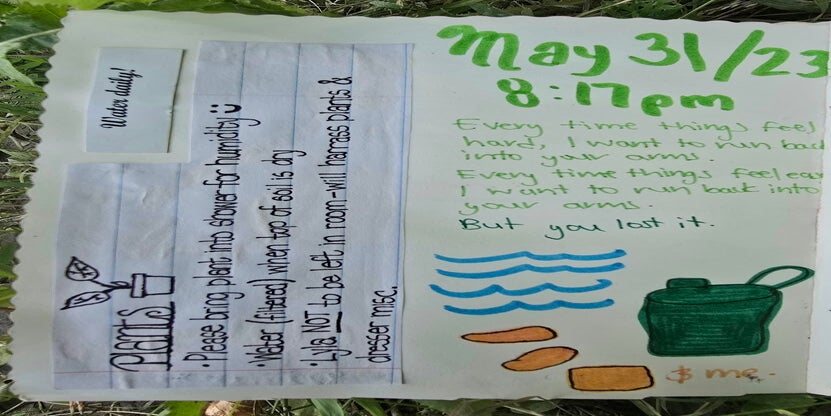 Water daily!
Plants
• Please bring plant into shower for humidity
• Water (filtered) when top of soil is dry
• Lyla NOT to be left in room - will harrass plants &
dresser misc.
May 31/23
8:17pm
Every time things feel
hard, I want to run back
into your arms.
Every time things feel
I want to run back into
your arms.
But you lost it.
& me.